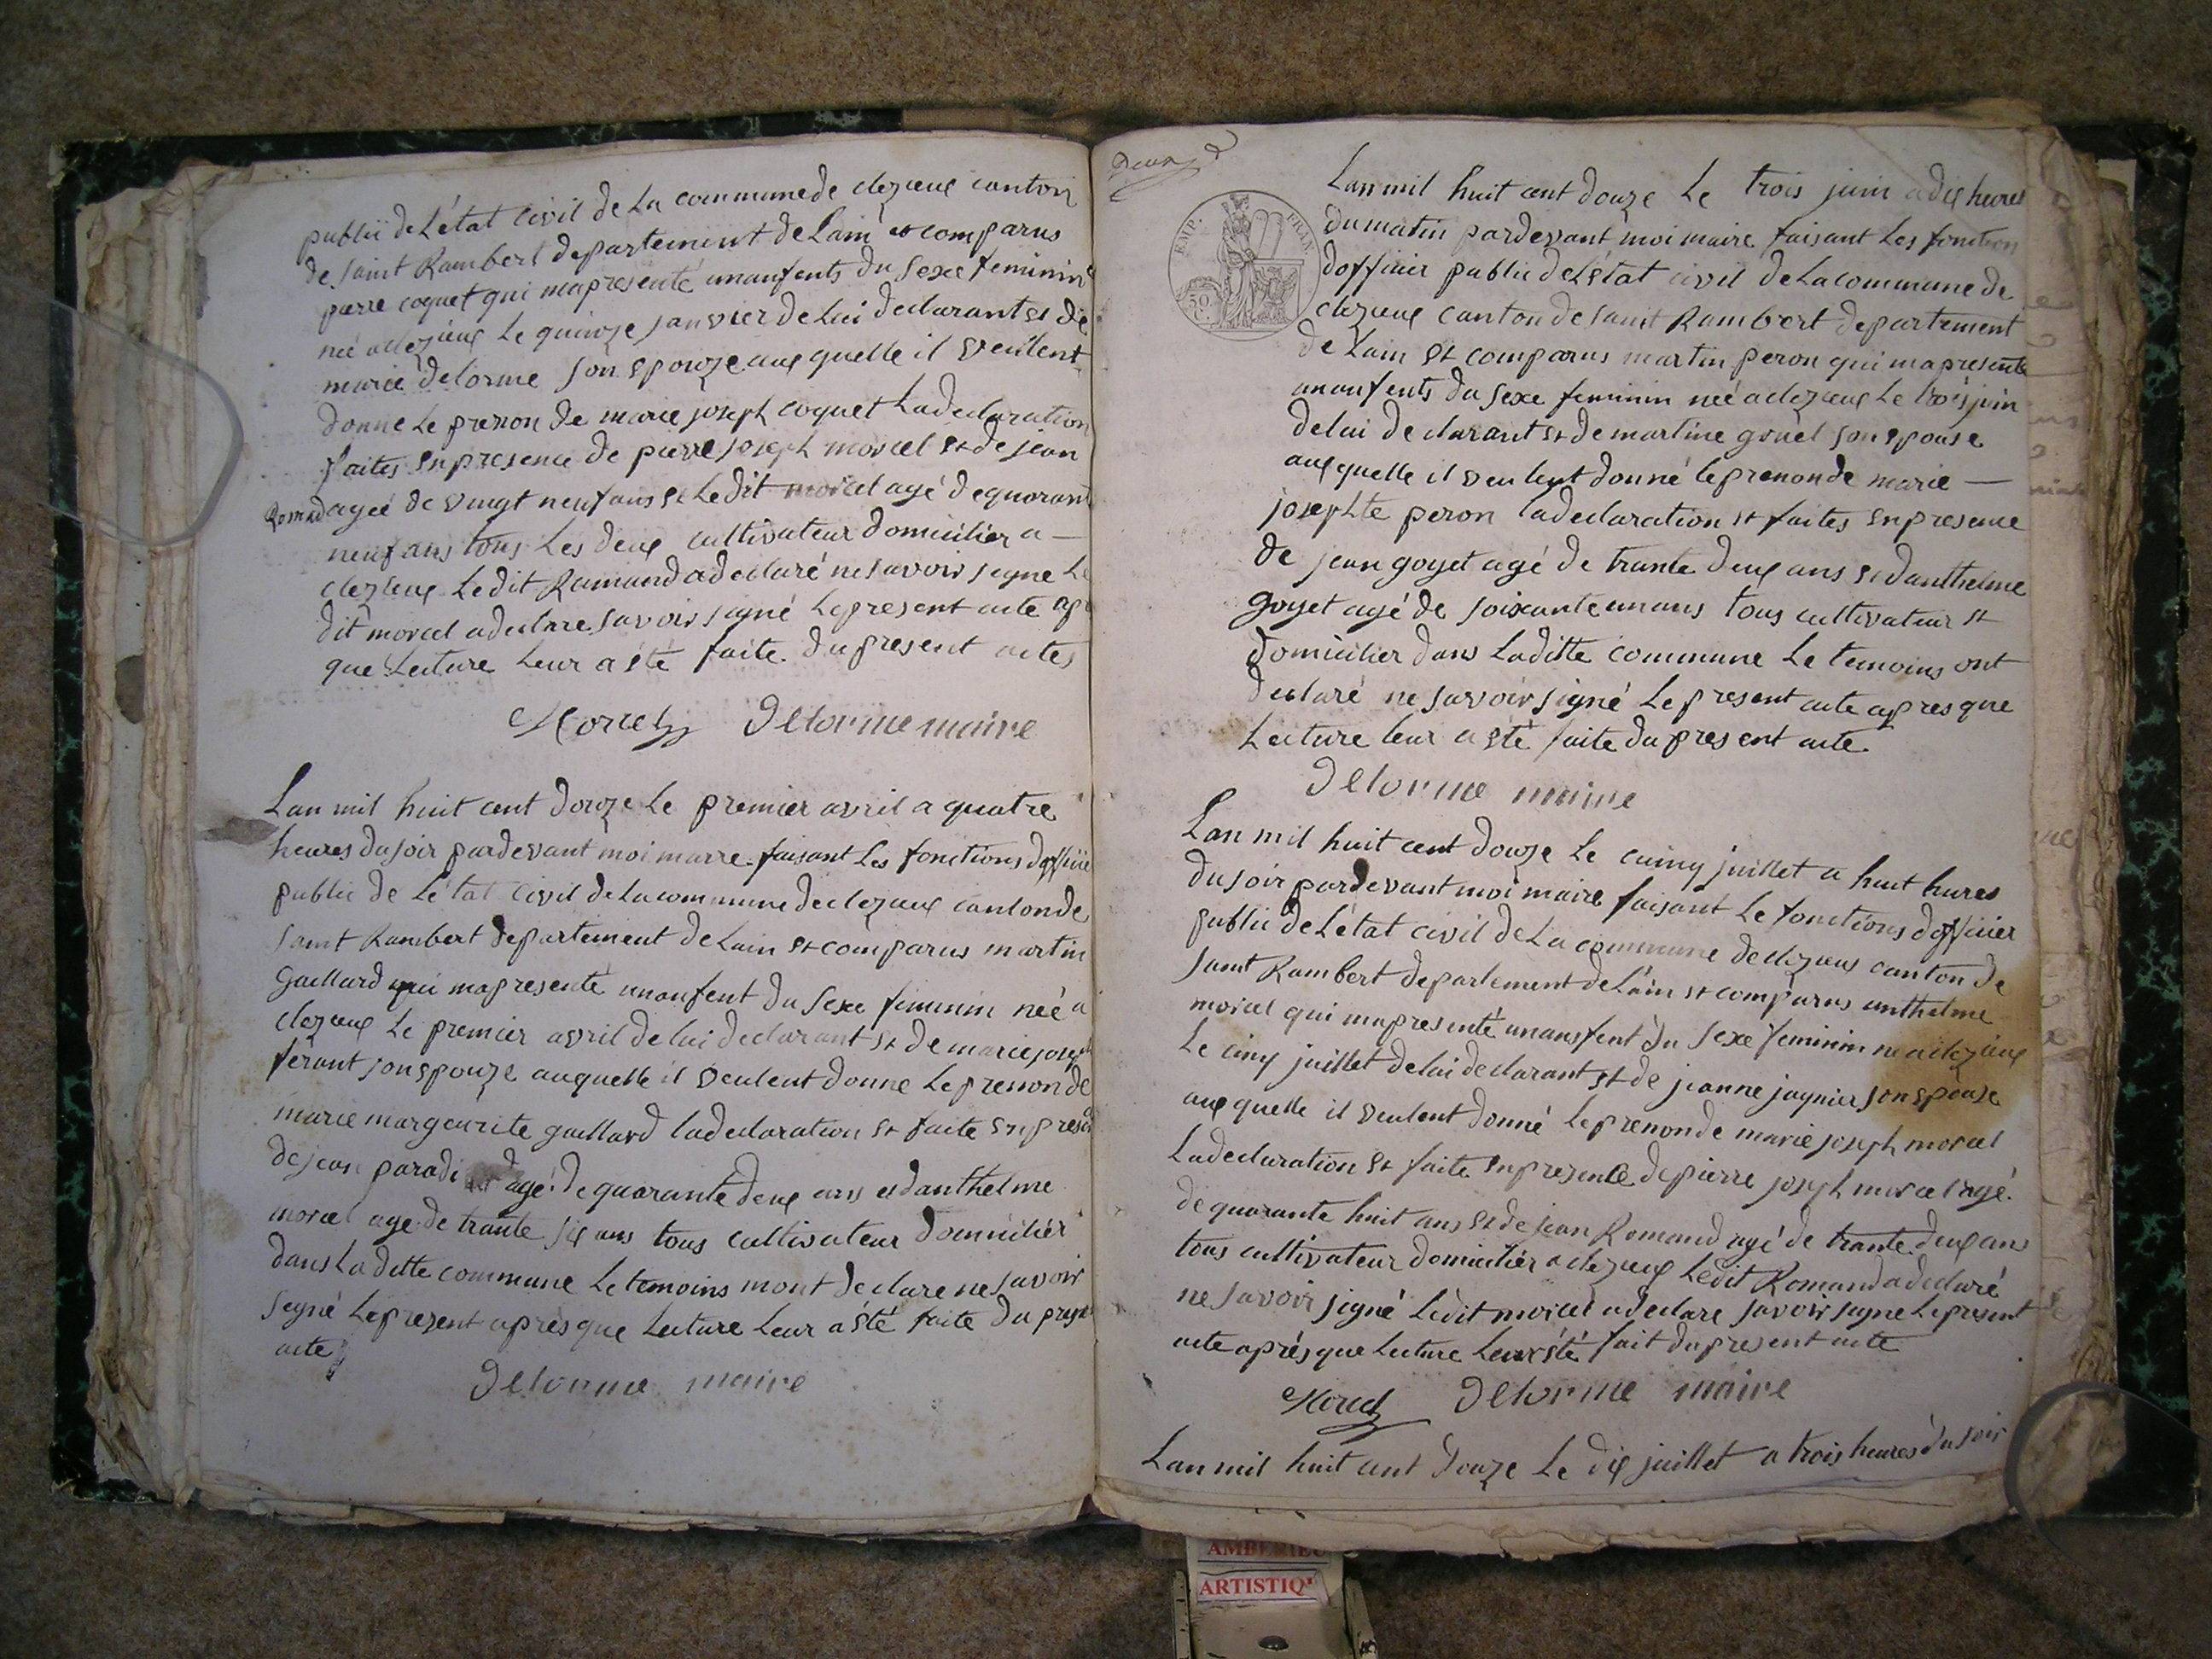 publiï de L'état Civil de La commune de clezieux canton
de saint Rambert departement de Lain est comparus
pierre coquet qui mapresenté unanfents du sexe feminin
neé a clezieux Le quinze janvier de Lui declarant et de
marie delorme son epouze aux quelle il veulent
donne Le prenon de marie joseph coquet La declaration
faites en presence de pierre joseph morcel et de jean
Romand ageé de vingt neuf ans et Le dit morcel agé de quarant
neuf ans tous Les deux cultivateur domicilier a —
clezieux Le dit Ramand a declaré ne savoir signe Le
dit morcel a declare savoir signé Le present acte ap
que Lecture Leur a été faite du present actes
Morcel Delorme maire
Lan mil huit cent douze Le premier avril a quatre
heures du soir pardevant moi maire faisant Les fonctions dofficie
public de Létat Civil de La commune de clezieux canton de
saint Rambert departement de Lain et comparus martin
Gaillard qui mapresenté unanfent du sexe feminin neé a
clezieux Le premier avril de lui declarant et de marie joseph
ferant son epouze auquelle il veulent donne Le prenon de
marie margeurite gaillard la declaration et faite en prese
de jean paradi agé de quarante deux ans et danthelme
morcel age de trante six ans tous cultivateur domicilier
dans La ditte commune Le temoins mont declare ne savoir
segné Le present après que Lecture Leur a été faite du present
acte
Delorme maire
Deux
EMP. FRAN.
50 C.
Lan mil huit cent douze Le trois juin a dix heures
du matin pardevant moi maire faisant Les fonction
dofficier public de L'état civil de La commune de
clezieux canton de saint Rambert departement
de Lain et comparus martin peron qui mapresenté
unanfents du sexe feminin neé a clezieux Le trois juin
de lui declarant et de martine gruel son epouse
aux quelle il veulent donné le prenon de marie —
josephte peron la declaration et faites en presence
de jean goyet agé de trante deux ans et danthelme
goyet agé de soixante un ans tous cultivateur et
domicilier dans La ditte commune Le temoins ont
declaré ne savoir signé Le present acte apres que
Lecture leur a été faite du present acte
Delorme maire
Lan mil huit cent douze Le cuinq juillet a huit hures
du soir pardevant moi maire faisant Le fonctions dofficier
public de L'état civil de La commune de clezieux canton de
saint Rambert departement de Lain et comparus anthelme
morcel qui mapresenté unansfent du sexe feminin ne a clezieux
Le cinq juillet de lui declarant et de jeanne jagnier son epouse
aux quelle il veulent donné Le prenon de marie joseph morcel
La declaration et faite en presence de pierre joseph morcel agé
de quarante huit ans et de jean Romand agé de trante deux ans
tous cultivateur domicilier a clezieux Ledit Romand a declaré
ne savoir signé Ledit morcel a declare savoir signe Le present
acte après que Lecture Leur été fait du present acte
Morcel Delorme maire
Lan mil huit cent douze Le dix juillet a trois heures du soir
AMBERIEU
ARTISTIQ